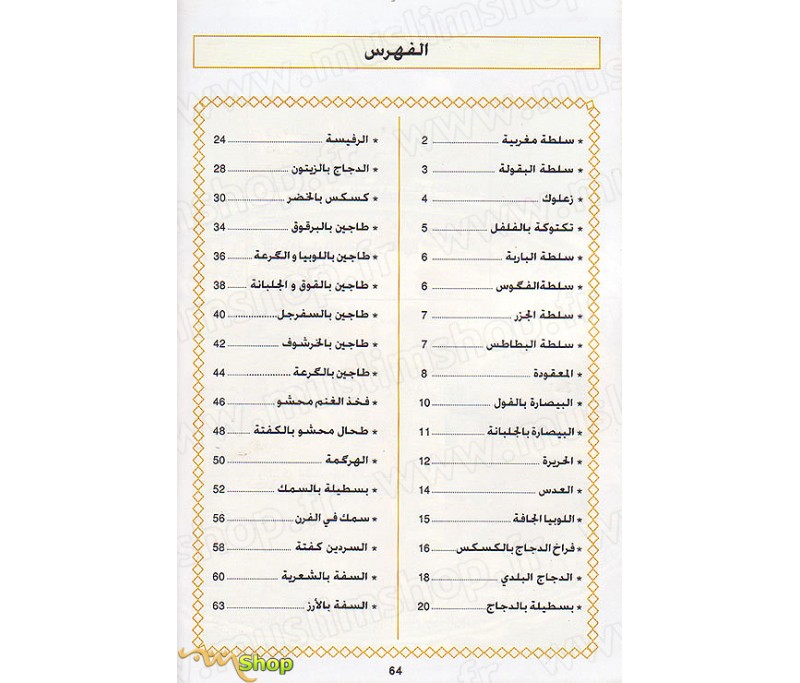 الفهرس
* سلطة مغربية ........ 2
* سلطة البقولة ........ 3
* زعلوك ........ 4
* تكتوكة بالفلفل ........ 5
* سلطة الباربة ........ 6
* سلطة الفگوس ........ 6
* سلطة الجزر ........ 7
* سلطة البطاطس ........ 7
* المعقودة ........ 8
* البيصارة بالفول ........ 10
* البيصارة بالجلبانة ........ 11
* الحريرة ........ 12
* العدس ........ 14
* اللوبيا الجافة ........ 15
* فراخ الدجاج بالكسكس ........ 16
* الدجاج البلدي ........ 18
* بسطيلة بالدجاج ........ 20
* الرفيسة ........ 24
* الدجاج بالزيتون ........ 28
* كسكس بالخضر ........ 30
* طاجين بالبرقوق ........ 34
* طاجين باللوبيا و الگرعة ........ 36
* طاجين بالقوق و الجلبانة ........ 38
* طاجين بالسفرجل ........ 40
* طاجين بالخرشوف ........ 42
* طاجين بالگرعة ........ 44
* فخذ الغنم محشو ........ 46
* طحال محشو بالكفتة ........ 48
* الهرگمة ........ 50
* بسطيلة بالسمك ........ 52
* سمك في الفرن ........ 56
* السردين كفتة ........ 58
* السفة بالشعرية ........ 60
* السفة بالأرز ........ 63
64
Shop
www.muslimshop.fr